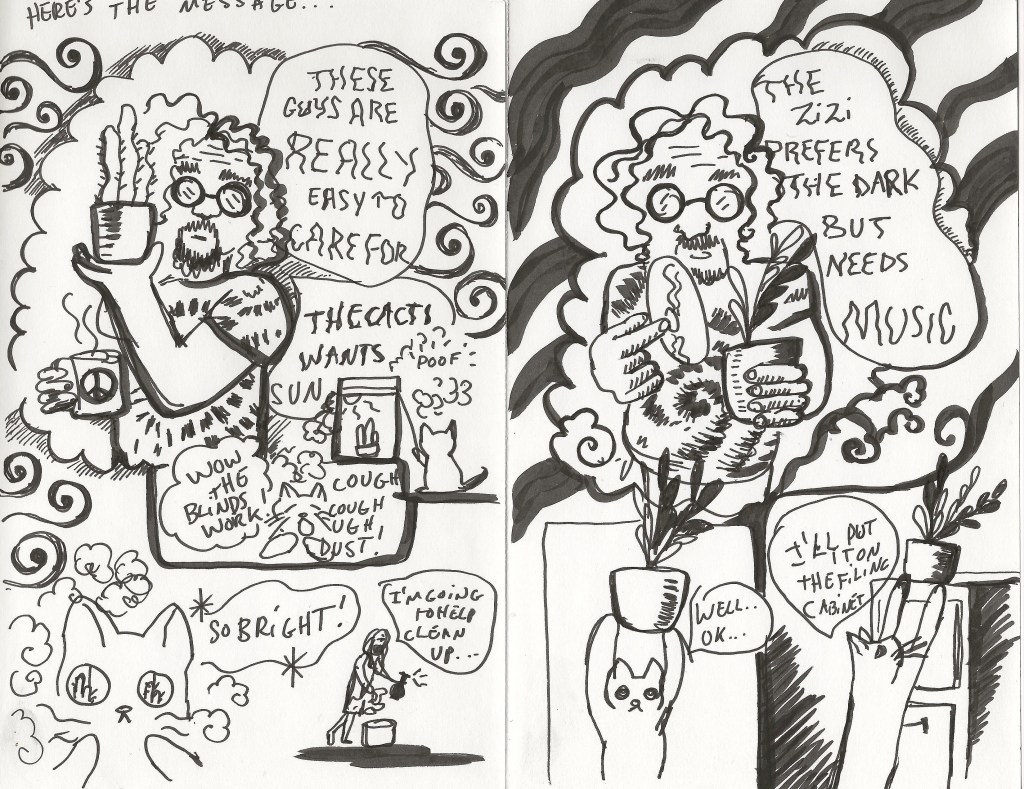 HERE'S THE MESSAGE...
THESE
GUYS ARE
REALLY
EASY TO
CARE FOR
THE CACTI
WANTS
SUN
POOF
WOW
THE
BLINDS
WORK!
COUGH
COUGH
UGH
DUST!
SO BRIGHT!
I'M GOING
TO HELP
CLEAN
UP...
THE
ZIZI
PREFERS
THE DARK
BUT
NEEDS
MUSIC
WELL..
OK...
I'LL PUT
IT ON
THE FILING
CABINET